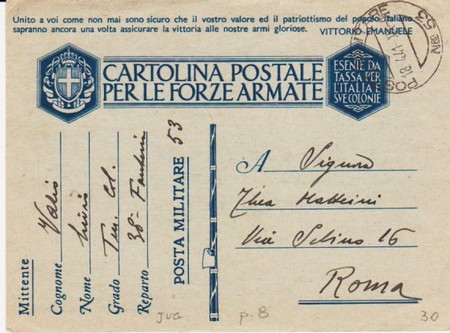 Unito a voi come non mai sono sicuro che il vostro valore ed il patriottismo del popolo italiano
sapranno ancora una volta assicurare la vittoria alle nostre armi gloriose. VITTORIO EMANUELE
CARTOLINA POSTALE
PER LE FORZE ARMATE
ESENTE DA
TASSA PER
L'ITALIA E
SVE COLONIE
NRO 53
Mittente
Cognome
Nome Livio
Grado Ten. Col.
Reparto 38° Fanteria
POSTA MILITARE 53
A Signora
Thea Matteini
Via Selino 16
Roma
p. 8
30